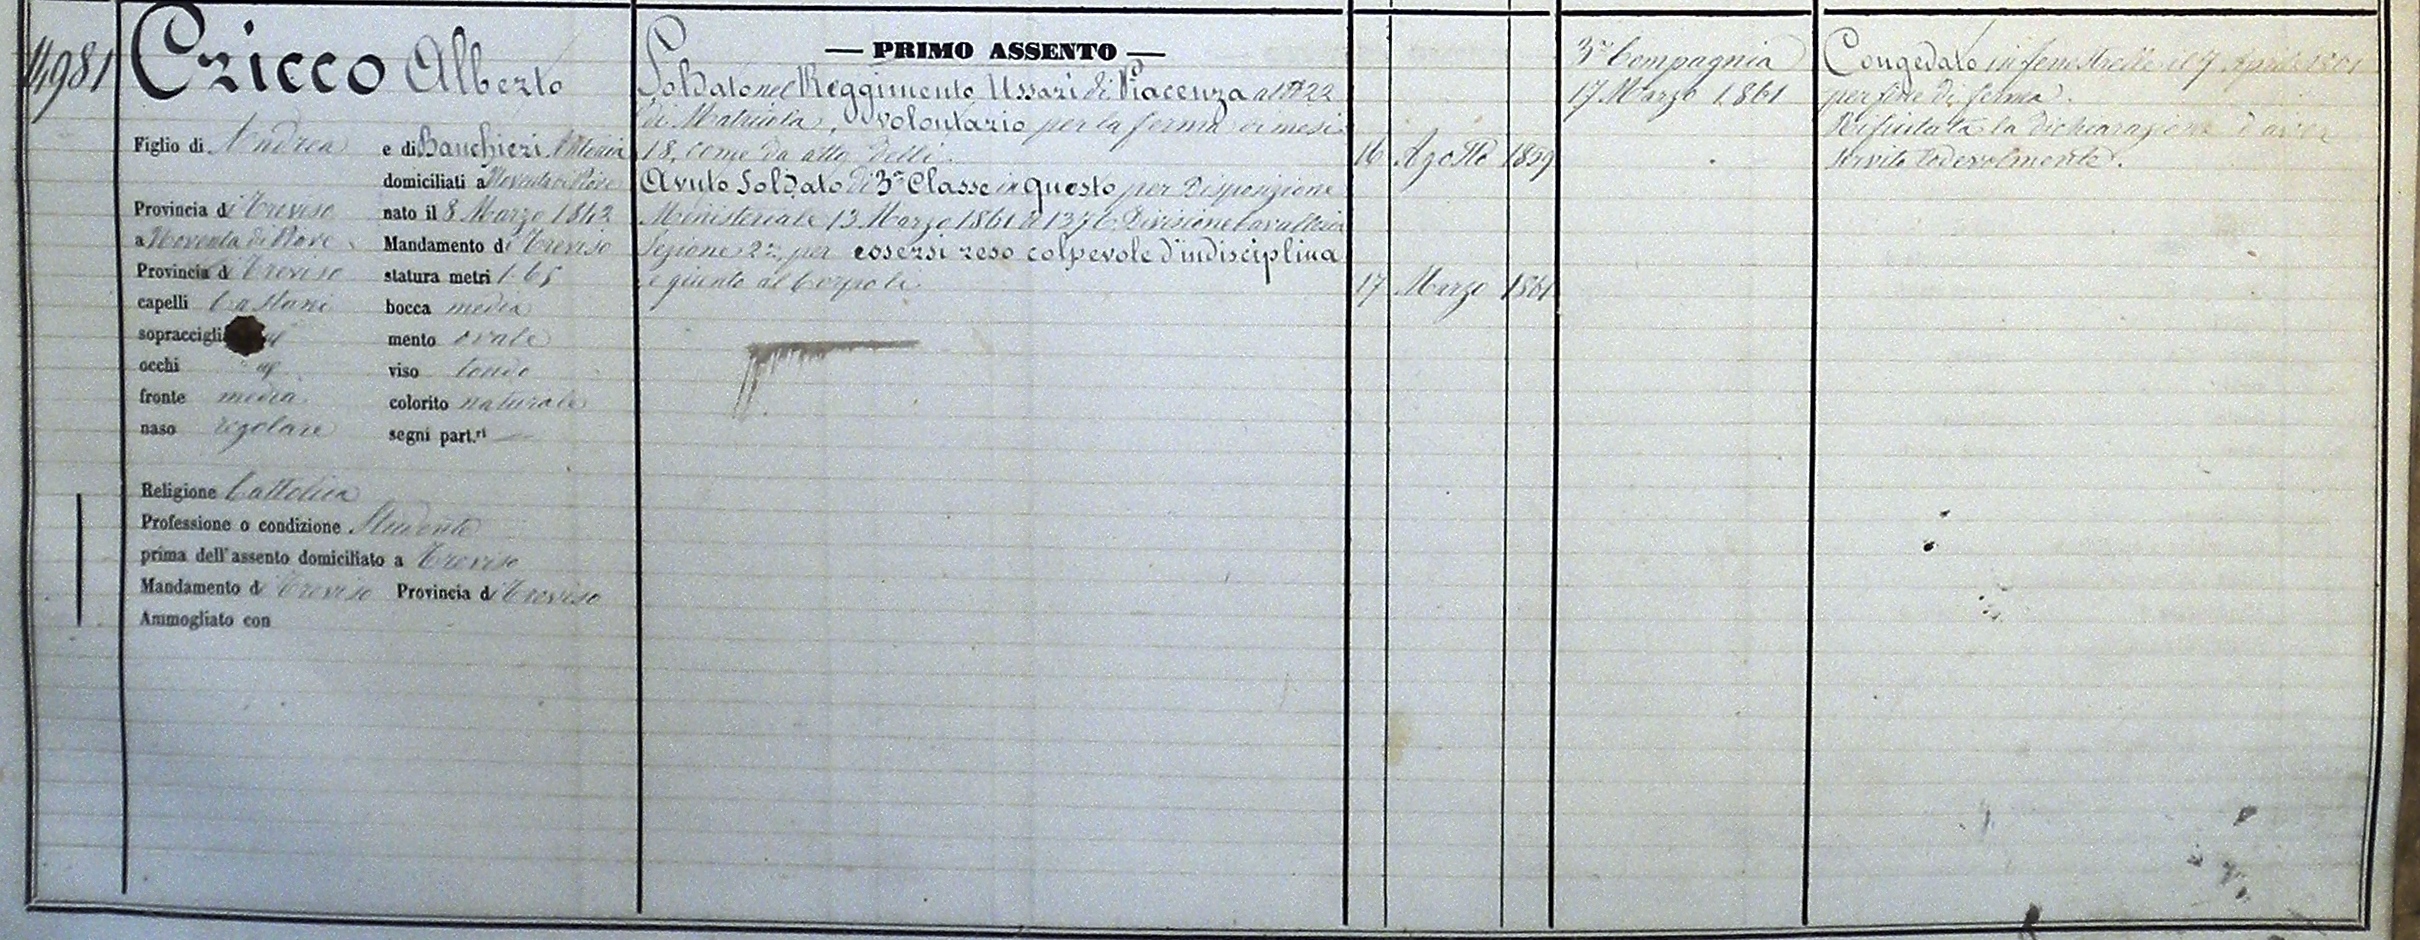 14981
Cricco Alberto
Figlio di Andrea e di Banchieri Antonia
domiciliati a Noventa di Piave
Provincia di Treviso nato il 8 Marzo 1842
a Noventa di Piave Mandamento di Treviso
Provincia di Treviso statura metri 1.65
capelli Castani bocca media
sopraccigli mento ovale
occhi viso tondo
fronte media colorito naturale
naso regolare segni part.ri
Religione Cattolica
Professione o condizione Studente
prima dell'assento domiciliato a Treviso
Mandamento di Treviso Provincia di Treviso
Ammogliato con
— PRIMO ASSENTO —
Soldato nel Reggimento Ussari di Piacenza al N° 22
di Matricola, volontario per la ferma di mesi
18, come da atto delli. 16 Agosto 1859
Avuto Soldato di 3a Classe in questo per Disposizione
Ministeriale 13 Marzo 1861 N 1376 Divisione Cavalleria
Sezione 2a, per essersi reso colpevole d'indisciplina
e giunto al Corpo li 17 Marzo 1861
3a Compagnia
17 Marzo 1861
Congedato in Fenestrelle il 7 Aprile 1861
per fine di ferma.
Rifiutata la dichiarazione d'aver
servito lodevolmente.